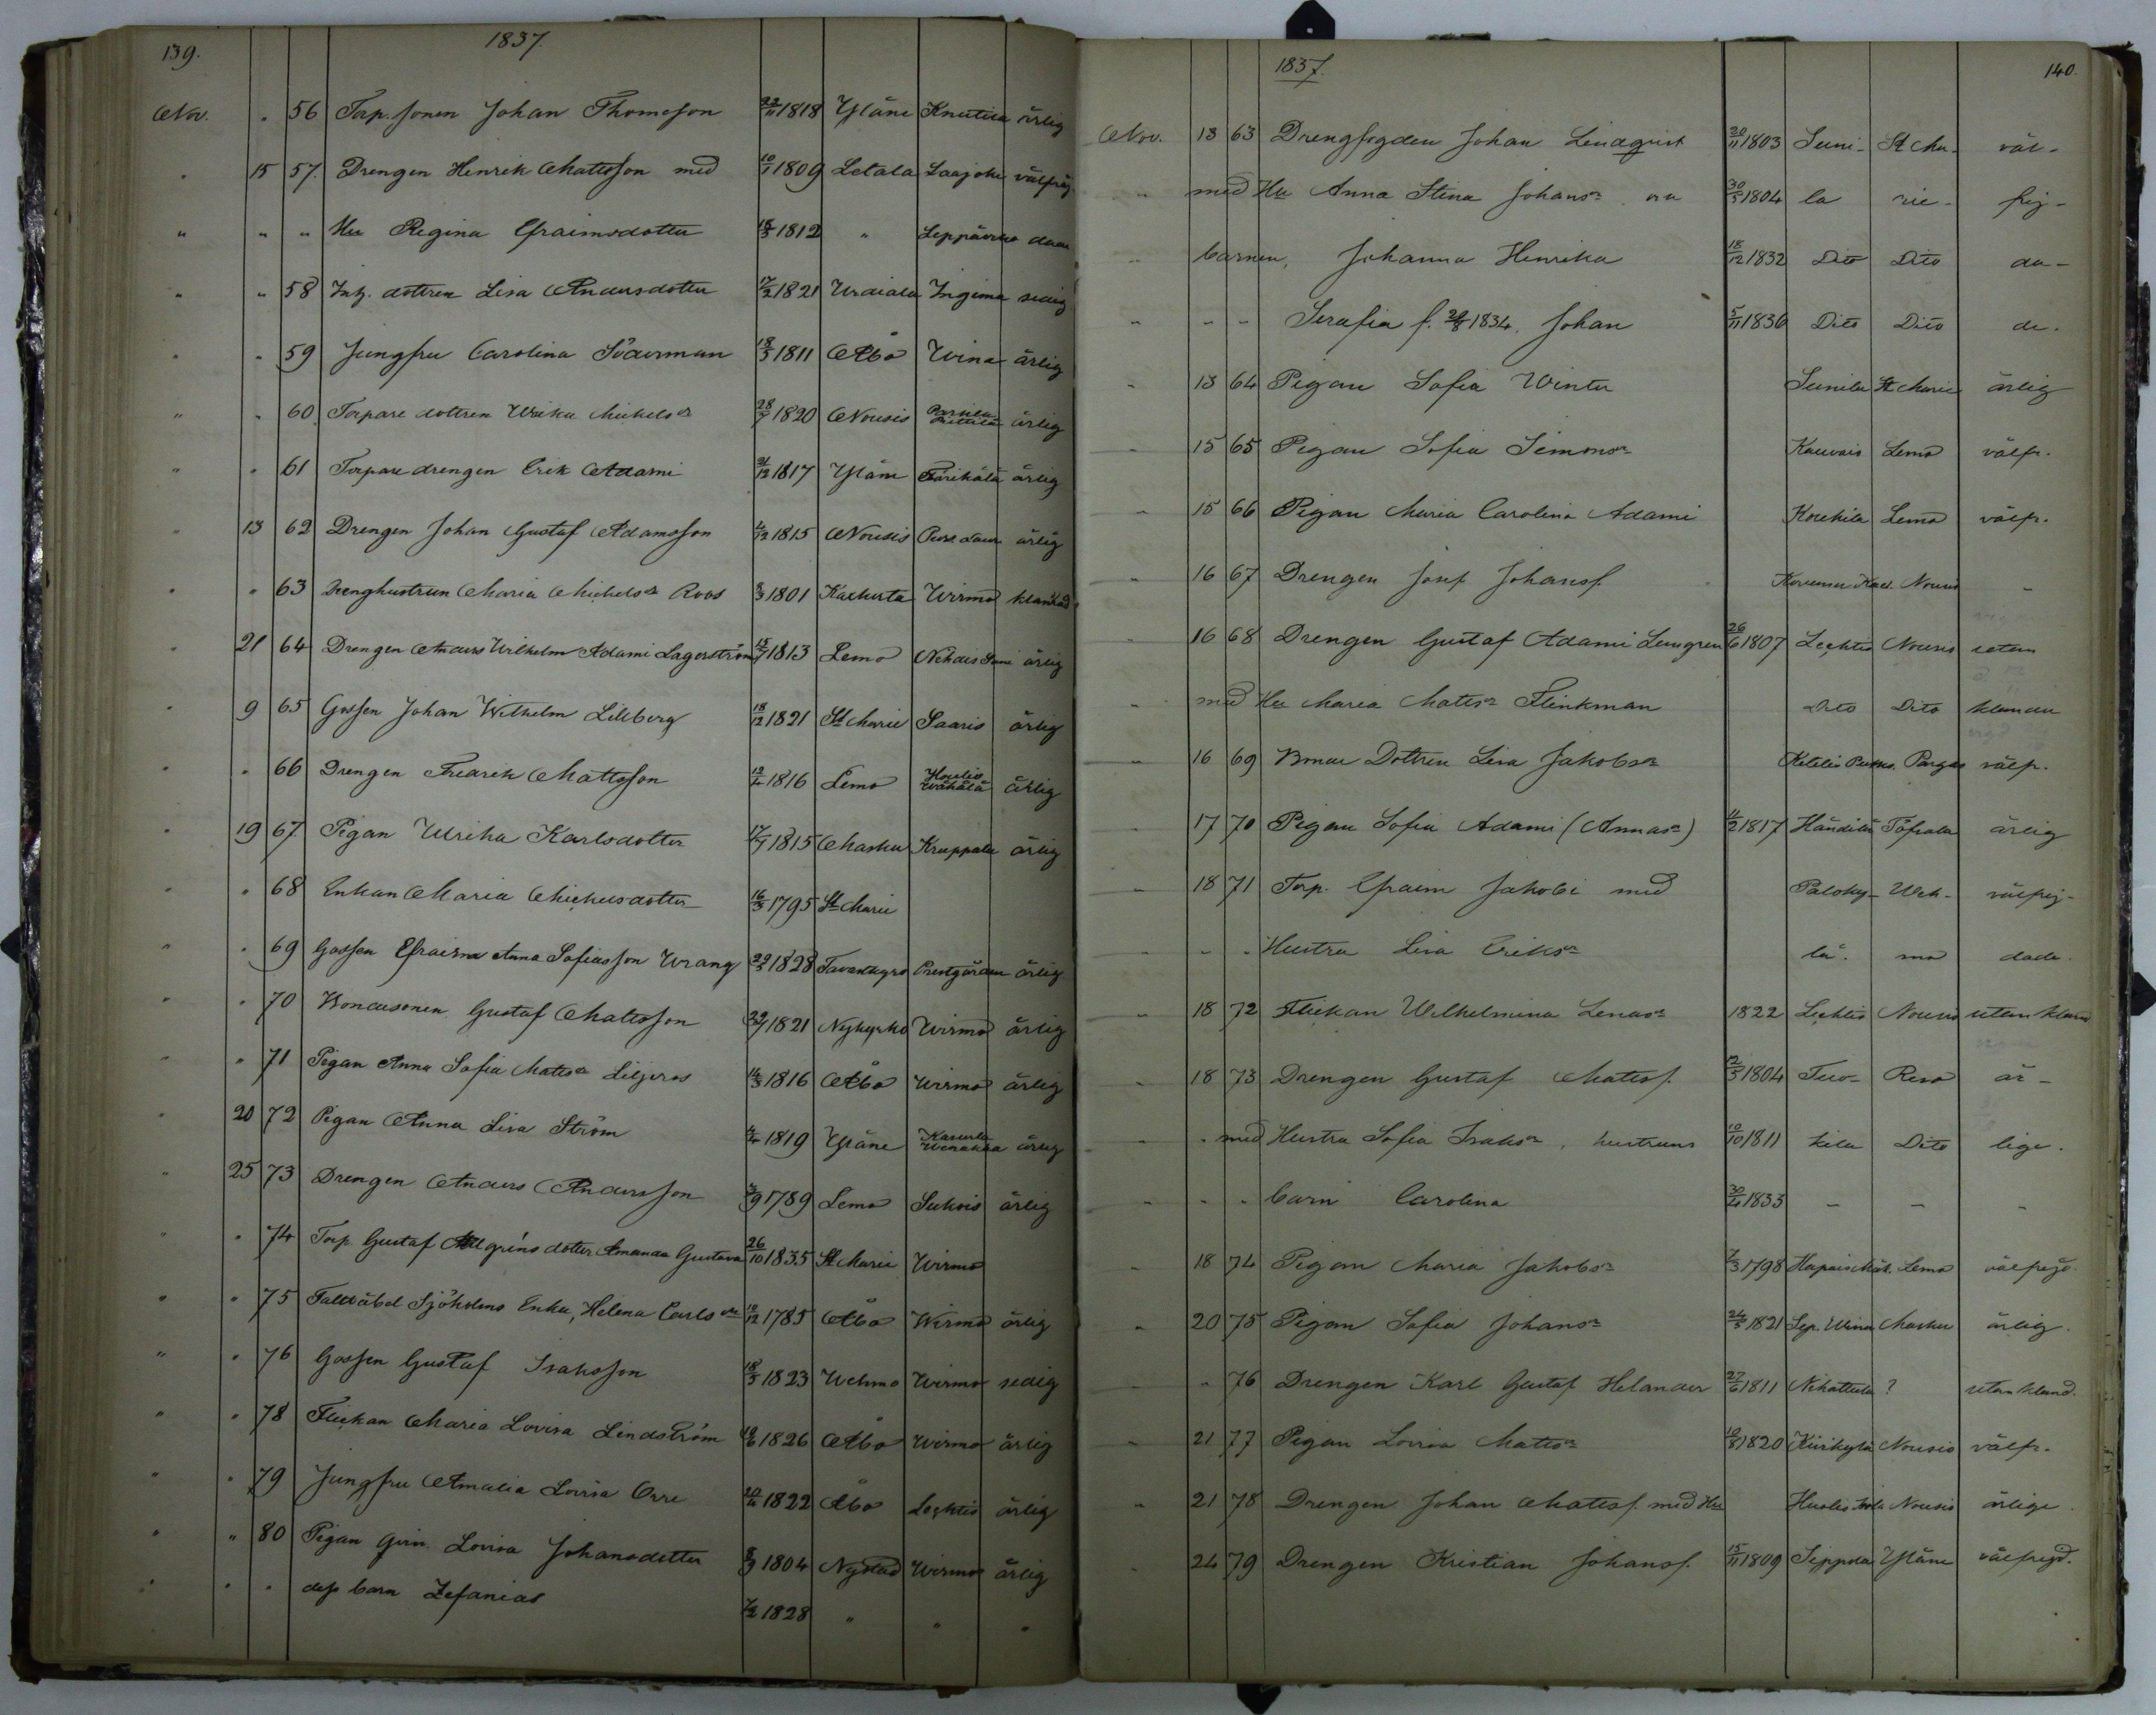 139.
1837.
Nov. " 56 Torp. sonen Johan Thomasson 22/11 1818 Yläne Knuutila ärlig
" 15 57. Drengen Henrik Mattsson med 10/1 1809 Letala Laajoki välfräj
" " " Hu Regina Efraimsdotter 15/3 1812 "
" " 58 Inh. dottren Lisa Andersdotter 17/2 1821 Urdiala sedig
" " 59 Jungfru Carolina Söderman 18/5 1811 Åbo Wina ärlig
" " 60. Torpare dottren Ulrika Mickelsdr 28/7 1820 Nousis ärlig
" " 61 Torpare drengen Erik Adami 21/12 1817 Yläne ärlig
" 13 62 Drengen Johan Gustaf Adamsson 4/12 1815 Nousis ärlig
" " 63 Drenghustrun Maria Michelsdr Roos 3/3 1801 Karhusta Wirmo klandrad
" 21 64 Drengen Anders Wilhelm Adami Lagerström 15/7 1813 Lemo ärlig
" 9 65 Gossen Johan Wilhelm Lillberg 18/12 1821 St Marie Saaris ärlig
" " 66 Drengen Fredrik Mattsson 12/4 1816 Lemo ärlig
" 19 67 Pigan Ulrika Karlsdotter 17/7 1815 Masku Kruppala ärlig
" " 68 Enkan Maria Michelsdotter 16/3 1795 St Marie
" " 69 Gossen Efraim Anna Sofiasson Wrang 29/3 1828 Tavastkyro Prestgården ärlig
" " 70 Bondesonen Gustaf Mattsson 22/7 1821 Nykyrko Wirmo ärlig
" " 71 Pigan Anna Sofia Matsdr Liljeros 14/3 1816 Åbo Wirmo ärlig
" 20 72 Pigan Anna Lisa Ström 4/4 1819 Yläne ärlig
" 25 73 Drengen Anders Andersson 3/9 1789 Lemo Sukois ärlig
" " 74 Torp. Gustaf Allgréns dotter Amanda Gustava 26/10 1835 St Marie Wirmo
" " 75 Fältväbel Sjöholms Enka, Helena Carlsdr 10/12 1785 Åbo Wirmo ärlig
" " 76 Gossen Gustaf Isaksson 18/5 1823 Wehmo Wirmo sedig
" " 78 Flickan Maria Lovisa Lindström 19/6 1826 Åbo Wirmo ärlig
" " 79 Jungfru Amalia Lovisa Orre 20/4 1822 Åbo Lechtis ärlig
" " 80 Pigan Lovisa Johansdotter 8/9 1804 Nystad Wirmo ärlig
" " dess barn Zefanias 7/2 1828 " " "
1837.
140.
Nov. 13 63 Drengfogden Johan Lindqvist 20/11 1803 Suni- St Ma- väl-
" med Hu Anna Stina Johansdr 30/5 1804 la rie- frj-
" barnen, Johanna Henrika 18/12 1832 Dito Dito da-
" - - Serafia f. 28/8 1834, Johan 5/11 1836 Dito Dito de.
" 13 64 Pigan Sofia Winter Sunila St Marie ärlig
" 15 65 Pigan Sofia Simonsdr Kauvais Lemo välfr.
" 15 66 Pigan Maria Carolina Adami Koukila Lemo välfr.
" 16 67 Drengen Josef Johanss. Nousis -
" 16 68 Drengen Gustaf Adami Lemgren 26/6 1807 Lechtis Nousis utan
" med Hu Maria Matsdr Flinkman Dito Dito klander
" 16 69 Bonde Dottren Lisa Jakobsdr Pargas välfr.
" 17 70 Pigan Sofia Adami (Annasdr) 11/2 1817 Händilä Töfsala ärlig
" 18 71 Torp. Efraim Jakobi med Paloky- Weh- välfrej-
" - - Hustru Lisa Eriksdr lä. mo dade.
" 18 72 Flickan Wilhelmina Lenasdr 1822 Lechtis Nousis utan kland
" 18 73 Drengen Gustaf Matss. 12/3 1804 Tuo- Reso är-
" " med Hustru Sofia Isaksdr, hustruns 10/10 1811 kila Dito lige.
" - - barn Carolina 30/4 1833 - - -
" 18 74 Pigan Maria Jakobsdr 7/3 1798 Lemo välfrejd.
" 20 75 Pigan Sofia Johansdr 24/5 1821 Masku ärlig.
" " 76 Drengen Karl Gustaf Helander 27/6 1811 Nihattula ? utan kland.
" 21 77 Pigan Lovisa Matsdr 10/8 1820 Kiirkylä Nousis välfr.
" 21 78 Drengen Johan Matss. med Hu Nousis ärlige
" 24 79 Drengen Kristian Johanss. 15/11 1809 Seppola Yläne välfrejd.